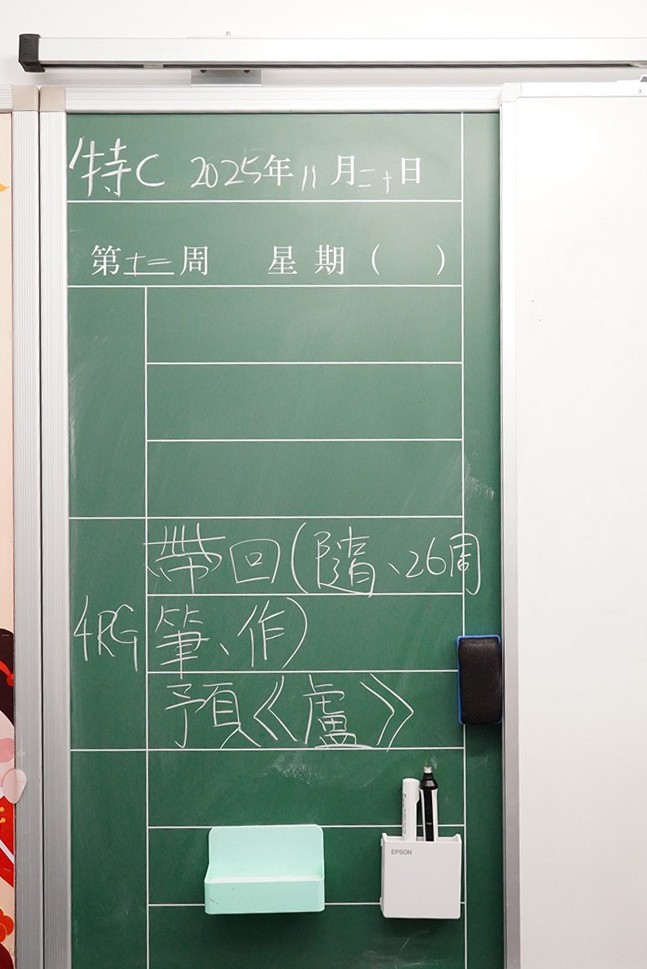 特C 2025年11月二十日
第十二周 星期( )
帶回(隨、26周
4RG 筆、作)
預《盧》
EPSON